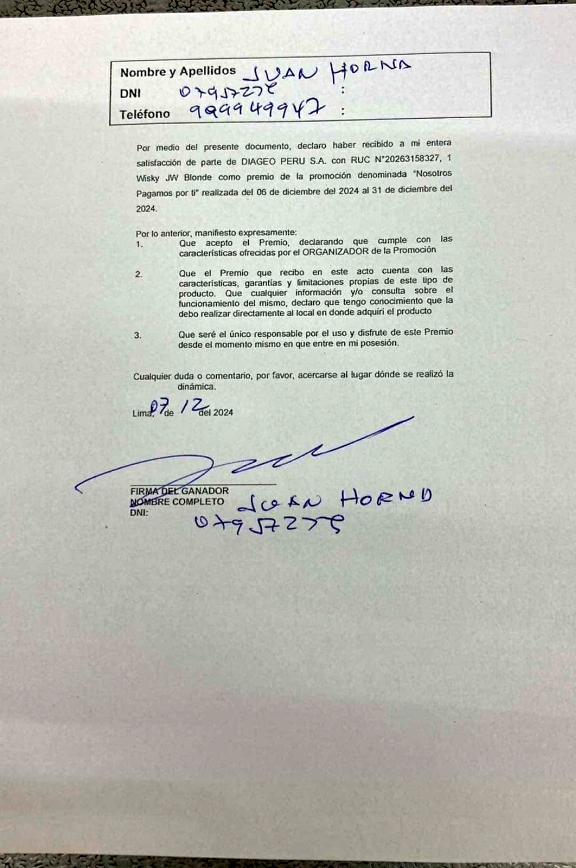 Nombre y Apellidos JUAN HORNA
DNI 07957275 :
Teléfono 999949947 :
Por medio del presente documento, declaro haber recibido a mi entera
satisfacción de parte de DIAGEO PERU S.A. con RUC N°20263158327, 1
Wisky JW Blonde como premio de la promoción denominada "Nosotros
Pagamos por ti" realizada del 06 de diciembre del 2024 al 31 de diciembre del
2024.
Por lo anterior, manifiesto expresamente:
1. Que acepto el Premio, declarando que cumple con las
características ofrecidas por el ORGANIZADOR de la Promoción
2. Que el Premio que recibo en este acto cuenta con las
características, garantías y limitaciones propias de este tipo de
producto. Que cualquier información y/o consulta sobre el
funcionamiento del mismo, declaro que tengo conocimiento que la
debo realizar directamente al local en donde adquirí el producto
3. Que seré el único responsable por el uso y disfrute de este Premio
desde el momento mismo en que entre en mi posesión.
Cualquier duda o comentario, por favor, acercarse al lugar dónde se realizó la
dinámica.
Lima, 07 de 12 del 2024
FIRMA DEL GANADOR
NOMBRE COMPLETO JUAN HORNA
DNI: 07957275